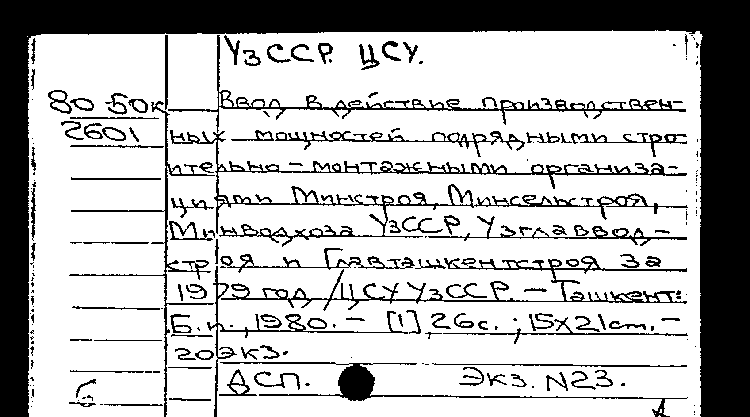 УзССР. ЦСУ.
80-50к Ввод в действие производствен-
2601 ных мощностей подрядными стро-
ительно-монтажными организа-
циями Минстроя, Минсельстроя,
Минводхоза УзССР, Узглаввод-
строя и Главташкентстроя за
1979 год /ЦСУ УзССР. - Ташкент:
Б.и., 1980. - [1], 26с.; 15х21см. -
20экз.
б ДСП. Экз. N23.